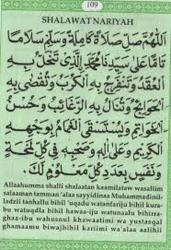 109
SHALAWAT NARIYAH
اَللّٰهُمَّ صَلِّ صَلَاةً كَامِلَةً وَسَلِّمْ سَلَامًا
تَامًّا عَلَى سَيِّدِنَا مُحَمَّدِ الَّذِي تَنْحَلُّ بِهِ
الْعُقَدُ وَتَنْفَرِجُ بِهِ الْكُرَبُ وَتُقْضَى بِهِ
الْحَوَائِجُ وَتُنَالُ بِهِ الرَّغَائِبُ وَحُسْنُ
الْخَوَاتِمِ وَيُسْتَسْقَى الْغَمَامُ بِوَجْهِهِ
الْكَرِيْمِ وَعَلَى اٰلِهِ وَصَحْبِهِ فِي كُلِّ لَمْحَةٍ
وَنَفَسٍ بِعَدَدِ كُلِّ مَعْلُوْمٍ لَكَ
Allaahumma shalli shalaatan kaamilataw wasallim
salaaman tamman 'alaa sayyidinaa Muhammadinil-
ladzii tanhallu bihil 'uqadu watanfariju bihil kuru-
bu watuqdla bihil hawaa-iju watunaalu bihirra-
ghaa-ibu wahusnul khawaatimi wa yustasqal
ghamaamu biwajhihil kariimi wa'alaa aalihii